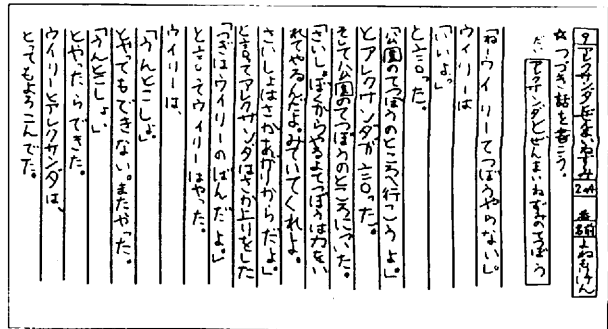 9 アレクサンダとぜんまいねずみ 2の4 名前 よねもけん
☆つづき話を書こう。
だい アレクサンダとぜんまいねずみのてつぼう
「ねーウイリーてつぼうやらない」。
ウイリーは
「いいよ。」
と言った。
「公園のてつぼうのところへ行こうよ。」
とアレクサンダが言った。
そして公園のてつぼうのところについた。
「さいしょぼくからやるよてつぼうは力をい
れてやるんだよ。みていてくれよ。
さいしょはさかあがりからだよ。」
と言ってアレクサンダはさか上りをした
「つぎはウイリーのばんだよ。」
と言ってウイリーはやった。
ウイリーは、
「うんとこしょ。」
とやってもできない。またやった。
「うんとこしょ。」
とやったらできた。
ウイリーとアレクサンダは、
とってもよろこんでた。